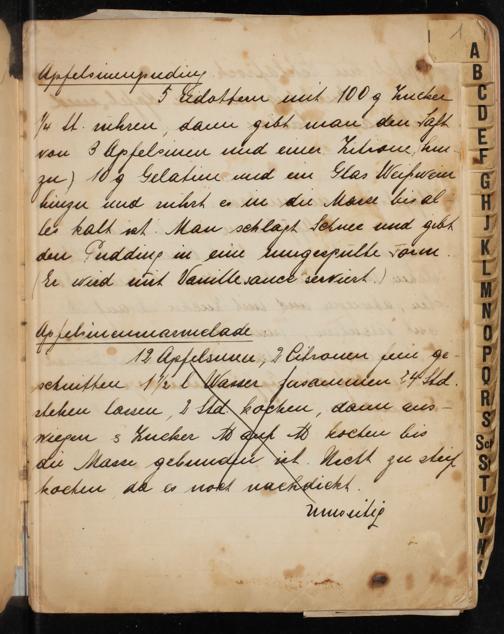 1
Apfelsinenpudding
5 Eidottern mit 100 g Zucker
1/4 St. rühren, dann gibt man den Saft
von 3 Apfelsinen und einer Zitrone, hin-
zu) 10 g Gelatine und ein Glas Weißwein
hinzu und rührt es in die Masse bis al-
les kalt ist. Man schlägt Schnee und gibt
den Pudding in eine umgespülte Form.
(Er wird mit Vanillesauce serviert.)
Apfelsinenmarmelade
12 Apfelsinen, 2 Citronen fein ge-
schnitten 1 1/2 l Wasser zusammen 24 Std.
stehen lassen, 2 Std. kochen, dann aus-
wiegen s Zucker ℔ auf ℔ kochen bis
die Masse gebunden ist. Nicht zu steif
kochen da es noch nachdickt.
umseitig
A
B
C
D
E
F
G
H
J
K
L
M
N
O
P
Q
R
S
Sch
S
T
U
V
W